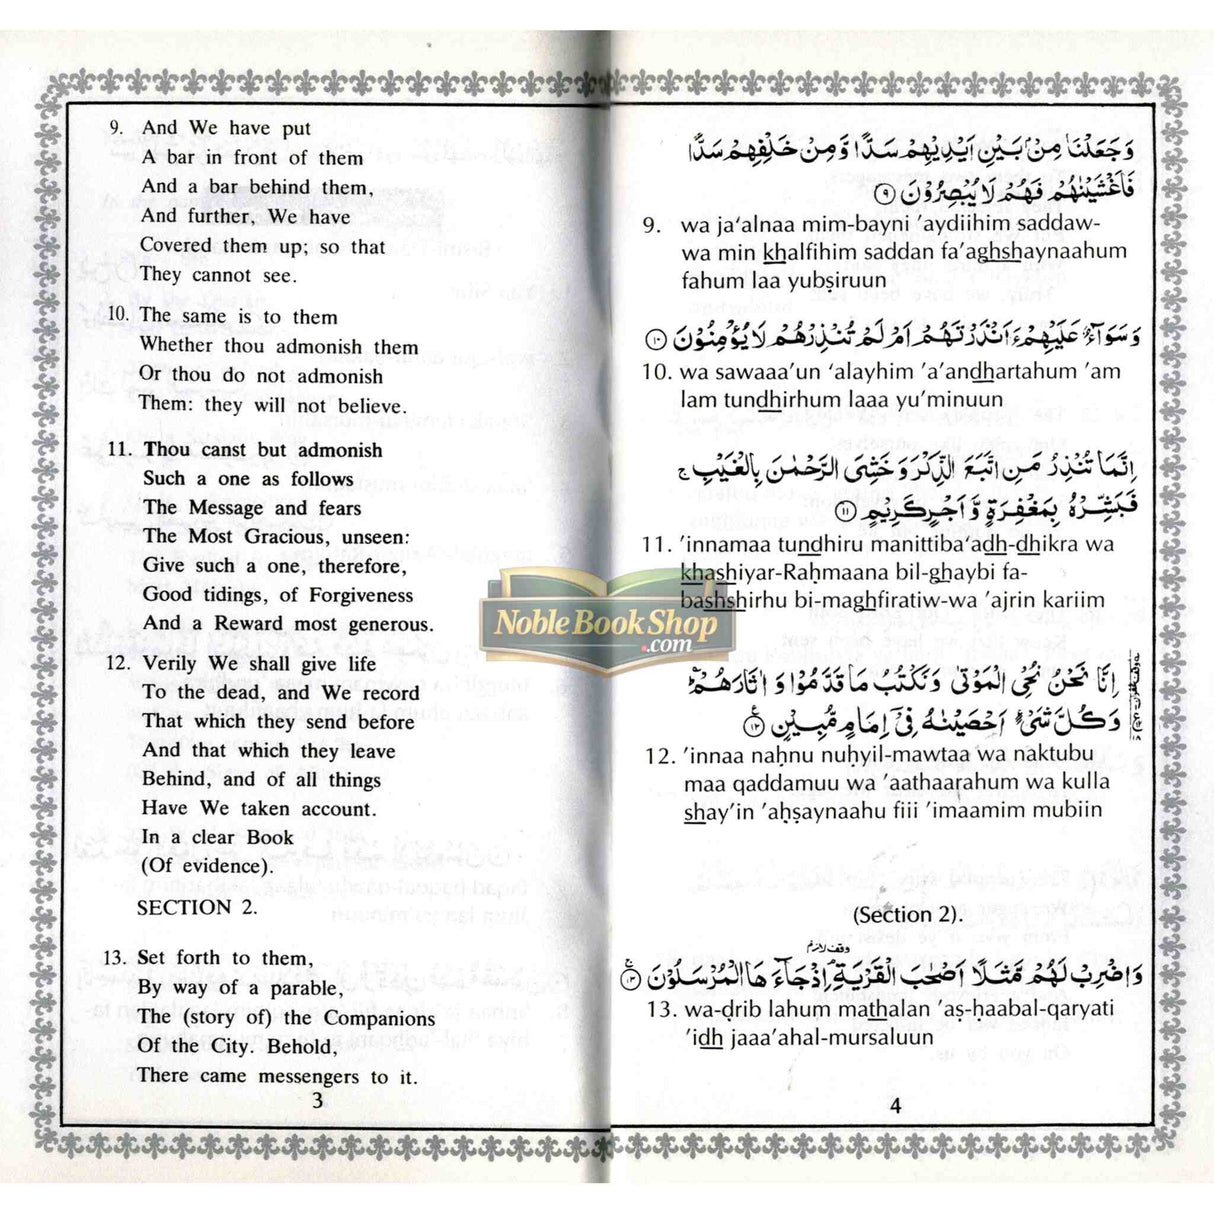 9. And We have put
A bar in front of them
And a bar behind them,
And further, We have
Covered them up; so that
They cannot see.
10. The same is to them
Whether thou admonish them
Or thou do not admonish
Them: they will not believe.
11. Thou canst but admonish
Such a one as follows
The Message and fears
The Most Gracious, unseen:
Give such a one, therefore,
Good tidings, of Forgiveness
And a Reward most generous.
12. Verily We shall give life
To the dead, and We record
That which they send before
And that which they leave
Behind, and of all things
Have We taken account.
In a clear Book
(Of evidence).
SECTION 2.
13. Set forth to them,
By way of a parable,
The (story of) the Companions
Of the City. Behold,
There came messengers to it.
3
وَجَعَلْنَا مِنْۢ بَيْنِ اَيْدِيْهِمْ سَدًّا وَّمِنْ خَلْفِهِمْ سَدًّا
فَاَغْشَيْنٰهُمْ فَهُمْ لَا يُبْصِرُوْنَ ﴿٩﴾
9. wa ja‘alnaa mim-bayni ’aydiihim saddaw-
wa min khalfihim saddan fa’aghshaynaahum
fahum laa yubṣiruun
وَسَوَآءٌ عَلَيْهِمْ ءَاَنْذَرْتَهُمْ اَمْ لَمْ تُنْذِرْهُمْ لَا يُؤْمِنُوْنَ ﴿١٠﴾
10. wa sawaaa’un ‘alayhim ’a’andhartahum ’am
lam tundhirhum laaa yu’minuun
اِنَّمَا تُنْذِرُ مَنِ اتَّبَعَ الذِّكْرَ وَخَشِيَ الرَّحْمٰنَ بِالْغَيْبِ ۚ
فَبَشِّرْهُ بِمَغْفِرَةٍ وَّاَجْرٍ كَرِيْمٍ ﴿١١﴾
11. ’innamaa tundhiru manittiba‘adh-dhikra wa
khashiyar-Raḥmaana bil-ghaybi fa-
bashshirhu bi-maghfiratiw-wa ’ajrin kariim
اِنَّا نَحْنُ نُحْيِ الْمَوْتٰى وَنَكْتُبُ مَا قَدَّمُوْا وَاٰثَارَهُمْ ۛؕ
وَكُلَّ شَيْءٍ اَحْصَيْنٰهُ فِيْٓ اِمَامٍ مُّبِيْنٍ ﴿١٢﴾
12. ’innaa naḥnu nuḥyil-mawtaa wa naktubu
maa qaddamuu wa ’aathaarahum wa kulla
shay’in ’aḥṣaynaahu fiii ’imaamim mubiin
(Section 2).
وقف لازم
وَاضْرِبْ لَهُمْ مَّثَلًا اَصْحٰبَ الْقَرْيَةِ ۘ اِذْ جَآءَهَا الْمُرْسَلُوْنَ ﴿١٣﴾
13. wa-ḍrib lahum mathalan ’aṣ-ḥaabal-qaryati
’idh jaaa’ahal-mursaluun
4
Noble Book Shop
.com